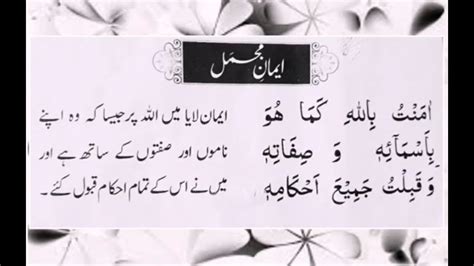 ایمانِ مجمل
اٰمَنْتُ بِاللّٰهِ كَمَا هُوَ
بِاَسْمَآئِهٖ وَ صِفَاتِهٖ
وَ قَبِلْتُ جَمِيْعَ اَحْكَامِهٖ
ایمان لایا میں اللہ پر جیسا کہ وہ اپنے
ناموں اور صفتوں کے ساتھ ہے اور
میں نے اس کے تمام احکام قبول کئے۔